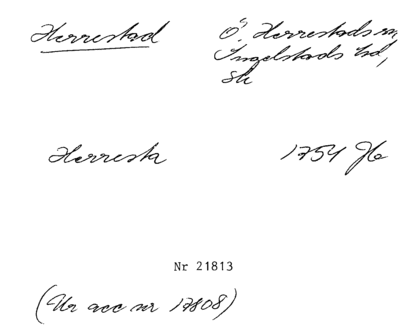 Herrestad
Ö. Herrestads sn,
Ingelstads hd,
Sk
Herresta 1754 Jb
Nr 21813
(Ur acc nr 17808)